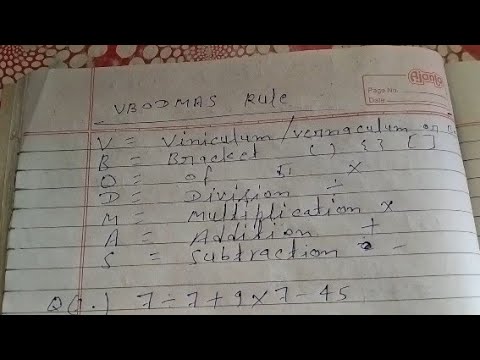 Ajanta
Page No.
Date
VBODMAS Rule
V = Viniculum/vernaculum or
B = Bracket ( ) { } [ ]
O = of × 
D = Division ÷
M = Multiplication ×
A = Addition +
S = Subtraction -
Q(1.) 7÷7+9×7-45